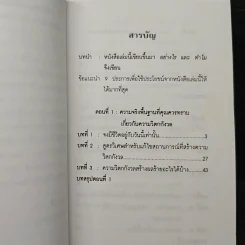 สารบัญ
บทนำ : หนังสือเล่มนี้เขียนขึ้นมา อย่างไร และ ทำไม
จึงเขียน
ข้อแนะนำ 9 ประการเพื่อใช้ประโยชน์จากหนังสือเล่มนี้ให้
มากที่สุด
ตอนที่ 1 : ความจริงพื้นฐานที่คุณควรทราบ
เกี่ยวกับความวิตกกังวล
บทที่ 1 : จงมีชีวิตอยู่กับวันนี้เท่านั้น.....3
บทที่ 2 : สูตรวิเศษสำหรับแก้ไขสถานการณ์ที่สร้างความ
วิตกกังวล.....27
บทที่ 3 : ความวิตกกังวลสร้างผลร้ายอะไรได้บ้าง.....43
บทสรุปตอนที่ 1